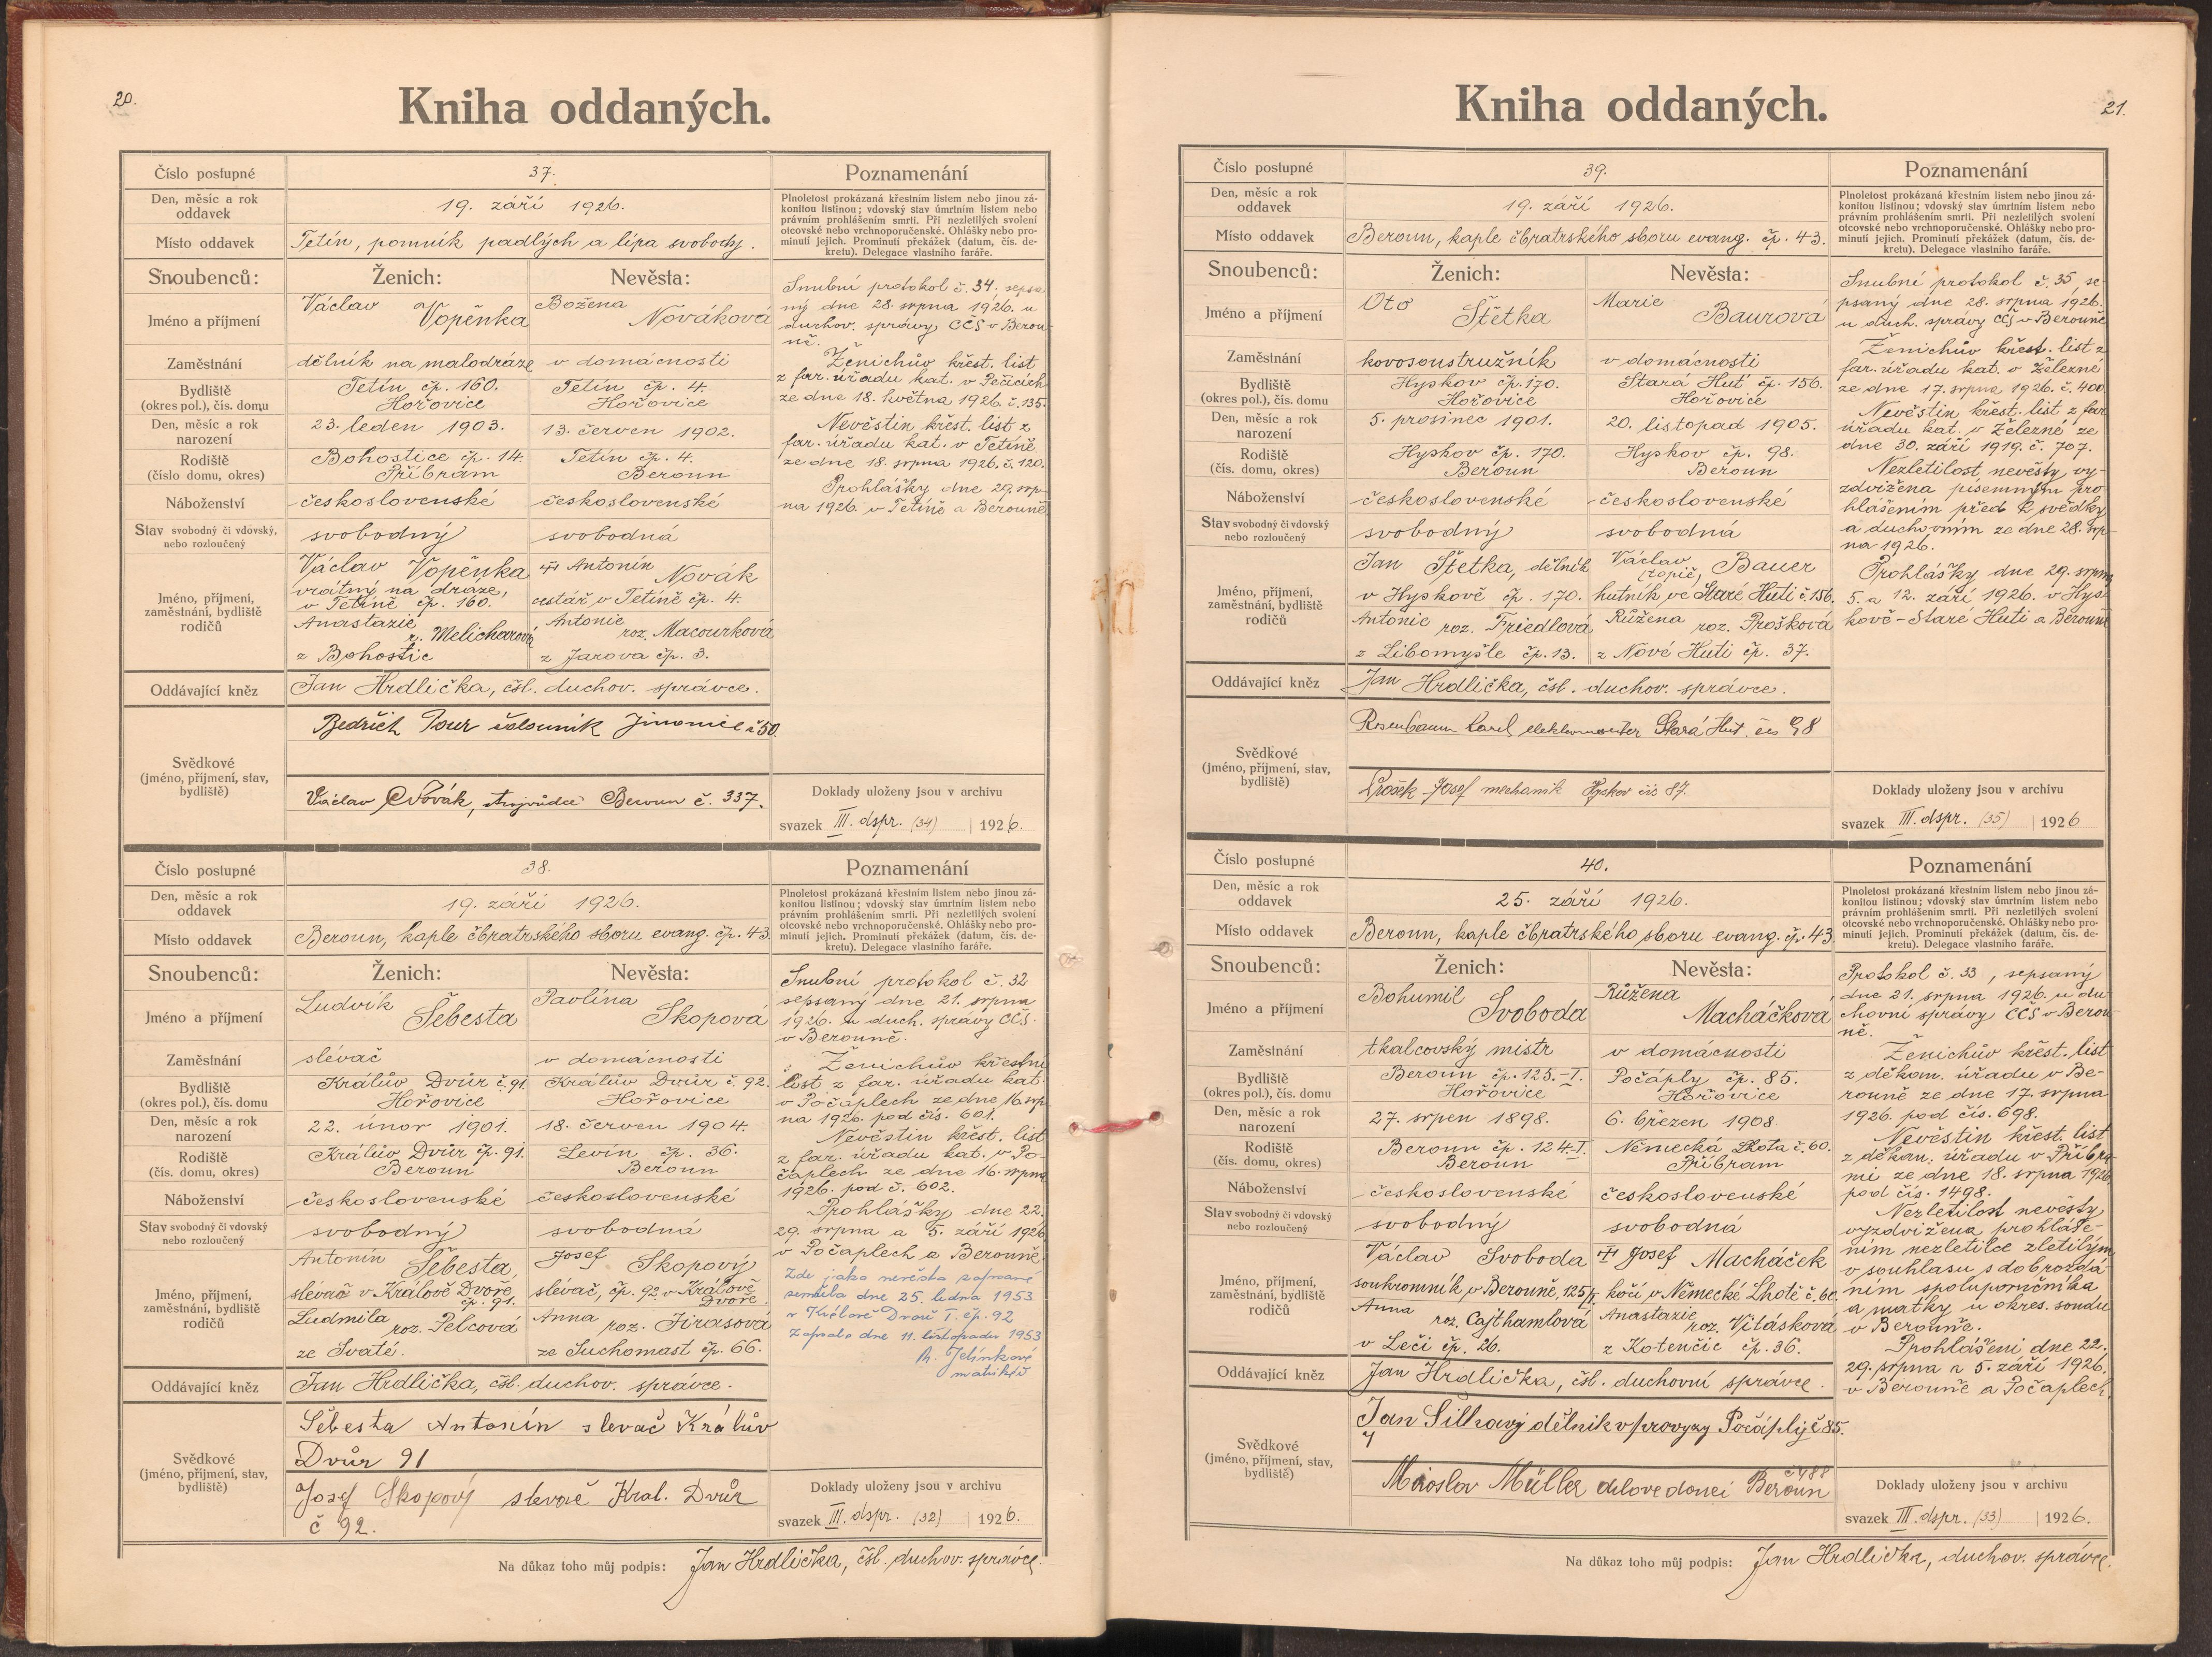 20.
Kniha oddaných.
Číslo postupné
37.
Poznamenání
Den, měsíc a rok
oddavek
19. září 1926.
Plnoletost prokázaná křestním listem nebo jinou zá-
konitou listinou; vdovský stav úmrtním listem nebo
právním prohlášením smrti. Při nezletilých svolení
otcovské nebo vrchnoporučenské. Ohlášky nebo pro-
minutí jejich. Prominutí překážek (datum, čís. de-
kretu). Delegace vlastního faráře.
Místo oddavek
Tetín, pomník padlých a lípa svobody.
Snoubenců:
Ženich:
Nevěsta:
Jméno a příjmení
Václav Vopěnka
Božena Nováková
Zaměstnání
dělník na malodráze
v domácnosti
Bydliště
(okres pol.), čís. domu
Tetín čp. 160.
Hořovice
Tetín čp. 4.
Hořovice
Den, měsíc a rok
narození
23. leden 1903.
13. červen 1902.
Rodiště
(číslo domu, okres)
Bohostice čp. 14.
Příbram
Tetín čp. 4.
Beroun
Náboženství
československé
československé
Stav svobodný či vdovský,
nebo rozloučený
svobodný
svobodná
Jméno, příjmení,
zaměstnání, bydliště
rodičů
Václav Vopěnka
vrátný na dráze,
v Tetíně čp. 160.
Anastazie
r. Melicharová
z Bohostic
Antonín
Novák
cestář v Tetíně čp. 4.
Antonie
roz. Macourková
z Jarova čp. 3.
Oddávající kněz
Jan Hrdlička, čsl. duchov. správce.
Svědkové
(jméno, příjmení, stav,
bydliště)
Bedřich Tour čalouník Jinonice č 50.
Václav Dvořák, strojvůdce Beroun č. 337.
Snubní protokol č. 34. sepsa-
ný dne 28. srpna 1926. u
duchov. správy CČS v Berou-
ně.
Ženichův křest. list
z far. úřadu kat. v Pečicích
ze dne 18. května 1926. č. 135.
Nevěstin křest. list z
far. úřadu kat. v Tetíně
ze dne 18. srpna 1926. č. 120.
Prohlášky dne 29. srp-
na 1926. v Tetíně a Berouně.
Doklady uloženy jsou v archivu
svazek III. dspr. (34) 1926.
Číslo postupné
38.
Poznamenání
Den, měsíc a rok
oddavek
19. září 1926.
Plnoletost prokázaná křestním listem nebo jinou zá-
konitou listinou; vdovský stav úmrtním listem nebo
právním prohlášením smrti. Při nezletilých svolení
otcovské nebo vrchnoporučenské. Ohlášky nebo pro-
minutí jejich. Prominutí překážek (datum, čís. de-
kretu). Delegace vlastního faráře.
Místo oddavek
Beroun, kaple čbratrského sboru evang. čp. 43.
Snoubenců:
Ženich:
Nevěsta:
Jméno a příjmení
Ludvík Šebesta
Pavlína Skopová
Zaměstnání
slévač
v domácnosti
Bydliště
(okres pol.), čís. domu
Králův Dvůr č. 91
Hořovice
Králův Dvůr č. 92.
Hořovice
Den, měsíc a rok
narození
22. únor 1901.
18. červen 1904.
Rodiště
(čís. domu, okres)
Králův Dvůr čp. 91.
Beroun
Levín čp. 36.
Beroun
Náboženství
československé
československé
Stav svobodný či vdovský
nebo rozloučený
svobodný
svobodná
Jméno, příjmení,
zaměstnání, bydliště
rodičů
Antonín Šebesta,
slévač v Králově Dvoře
čp. 91.
Ludmila
roz. Pelcová
ze Svaté.
Josef Skopový
slévač, čp. 92 v Králově
Dvoře.
Anna
roz. Jirasová
ze Suchomast čp. 66.
Oddávající kněz
Jan Hrdlička, čsl. duchov. správce.
Svědkové
(jméno, příjmení, stav,
bydliště)
Šebesta Antonín slevač Králův
Dvůr 91
Josef Skopový slevač Kral. Dvůr
č 92.
Snubní protokol č. 32
sepsaný dne 21. srpna
1926. u duch. správy CČS.
v Berouně.
Ženichův křestní
list z far. úřadu kat.
v Počaplech ze dne 16. srp-
na 1926. pod čís. 601.
Nevěstin křest. list
z far. úřadu kat. v Po-
čaplech ze dne 16. srpna
1926. pod č. 602.
Prohlášky dne 22.
29. srpna a 5. září 1926
v Počaplech a Berouně.
Zde jako nevěsta zapsaná
zemřela dne 25. ledna 1953
v Králově Dvoře I. čp. 92
Zapsala dne 11. listopadu 1953
Jelínková
matrikář
Doklady uloženy jsou v archivu
svazek III. dspr. (32) 1926.
Na důkaz toho můj podpis: Jan Hrdlička, čsl. duchov. správce.
21.
Kniha oddaných.
Číslo postupné
39.
Poznamenání
Den, měsíc a rok
oddavek
19. září 1926.
Plnoletost prokázaná křestním listem nebo jinou zá-
konitou listinou; vdovský stav úmrtním listem nebo
právním prohlášením smrti. Při nezletilých svolení
otcovské nebo vrchnoporučenské. Ohlášky nebo pro-
minutí jejich. Prominutí překážek (datum, čís. de-
kretu). Delegace vlastního faráře.
Místo oddavek
Beroun, kaple čbratrského sboru evang. čp. 43.
Snoubenců:
Ženich:
Nevěsta:
Jméno a příjmení
Oto Štětka
Marie Baurová
Zaměstnání
kovosoustružník
v domácnosti
Bydliště
(okres pol.), čís. domu
Hyskov čp. 170.
Hořovice
Stará Huť čp. 156.
Hořovice
Den, měsíc a rok
narození
5. prosinec 1901.
20. listopad 1905.
Rodiště
(čís. domu, okres)
Hyskov čp. 170.
Beroun
Hyskov čp. 98.
Beroun
Náboženství
československé
československé
Stav svobodný či vdovský
nebo rozloučený
svobodný
svobodná
Jméno, příjmení,
zaměstnání, bydliště
rodičů
Jan Štětka, dělník
v Hyskově čp. 170.
Antonie roz. Friedlová
z Libomyšle čp. 13.
Václav Bauer
(topič,
hutník ve Staré Huti č. 156.
Růžena roz. Prošková
z Nové Huti čp. 37.
Oddávající kněz
Jan Hrdlička, čsl. duchov. správce.
Svědkové
(jméno, příjmení, stav,
bydliště)
Rosenbaum Karel elektromonter Stará Huť čis 98
Prošek Josef mechanik Hyskov čis 87.
Snubní protokol č. 35, se-
psaný dne 28. srpna 1926.
u duch. správy CČS v Berouně
Ženichův křest. list z
far. úřadu kat. v Železné
ze dne 17. srpna 1926. č. 400.
Nevěstin křest. list z far.
úřadu kat. v Železné ze
dne 30. září 1919. č. 707.
Nezletilost nevěsty vy-
zdvižena písemným pro-
hlášením před 2 svědky
a duchovním ze dne 28. srp-
na 1926.
Prohlášky dne 29. srpna
5. a 12. září 1926. v Hys-
kově - Staré Huti a Berouně
Doklady uloženy jsou v archivu
svazek III. dspr. (35) 1926
Číslo postupné
40.
Poznamenání
Den, měsíc a rok
oddavek
25. září 1926.
Plnoletost prokázaná křestním listem nebo jinou zá-
konitou listinou; vdovský stav úmrtním listem nebo
právním prohlášením smrti. Při nezletilých svolení
otcovské nebo vrchnoporučenské. Ohlášky nebo pro-
minutí jejich. Prominutí překážek (datum, čís. de-
kretu). Delegace vlastního faráře.
Místo oddavek
Beroun, kaple čbratrského sboru evang. čp. 43
Snoubenců:
Ženich:
Nevěsta:
Jméno a příjmení
Bohumil Svoboda
Růžena Macháčková
Zaměstnání
tkalcovský mistr
v domácnosti
Bydliště
(okres pol.), čís. domu
Beroun čp. 125.-I.
Hořovice
Počáply čp. 85.
Hořovice
Den, měsíc a rok
narození
27. srpen 1898.
6. březen 1908.
Rodiště
(čís. domu, okres)
Beroun čp. 124-I.
Beroun
Německá Lhota č. 60.
Příbram
Náboženství
československé
československé
Stav svobodný či vdovský
nebo rozloučený
svobodný
svobodná
Jméno, příjmení,
zaměstnání, bydliště
rodičů
Václav Svoboda
soukromník v Berouně, 125/I.
Anna
roz. Cajthamlová
v Leči čp. 26.
Josef Macháček
kočí v Německé Lhotě č. 60.
Anastazie
roz. Vitásková
z Kotenčic čp. 36.
Oddávající kněz
Jan Hrdlička, čsl. duchovní správce.
Svědkové
(jméno, příjmení, stav,
bydliště)
Jan Silhavý dělnik v Počáplý č 85.
č 488
Miroslav Müller Beroun
Protokol č. 33, sepsaný
dne 21. srpna 1926. u du-
chovní správy CČS v Berou-
ně.
Ženichův křest. list
z děkan. úřadu v Be-
rouně ze dne 17. srpna
1926. pod čís. 698.
Nevěstin křest. list
z děkan. úřadu v Příbra-
mi ze dne 18. srpna 1926.
pod čís. 1498.
Nezletilost nevěsty
vyzdvižena prohláše-
ním nezletilce zletilým
v souhlasu s dobrozdá-
ním spoluporučníka
a matky u okres. soudu
v Berouně.
Prohlášení dne 22.
29. srpna a 5. září 1926.
v Berouně a Počaplech
Doklady uloženy jsou v archivu
svazek III. dspr. (33) 1926.
Na důkaz toho můj podpis: Jan Hrdlička, duchov. správce.